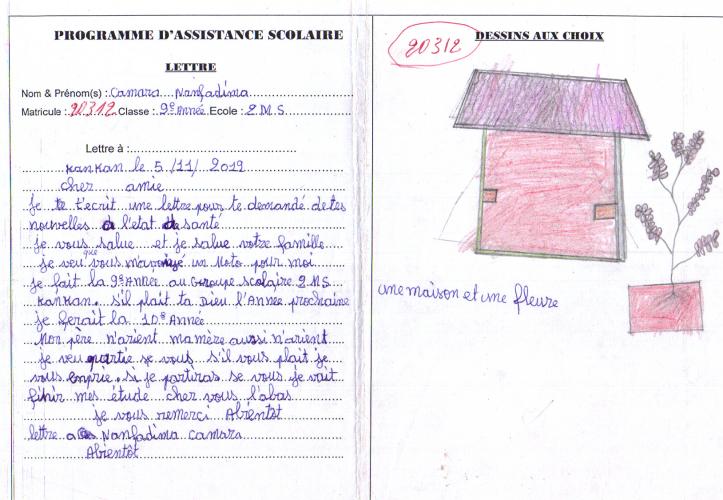 PROGRAMME D'ASSISTANCE SCOLAIRE
LETTRE
Nom & Prénom(s) : Camara Nanfadima
Matricule : 20312 Classe : 9e Année Ecole : 2MS
Lettre à :
Kankan le 5 /11/ 2019
cher amie
je te t'ecrit une lettre pour te demandé de tes
nouvelles à l'etat de santé
je vous salue et je salue votre famille
je veu que vous m'avoiyé un Moto pour moi
je fait la 9e Anner au Groupe scolaire 2MS
Kankan. s'il plait ta Dieu l'Année prochaine
je ferait la 10e Année
Mon père n'arient ma mère aussi n'arient
je veu quartie se vous s'il vous plait je
vous emprie. si je partiras se vous je vait
finir mes étude cher vous l'abas
je vous remerci Abientot
lettre a Nanfadima Camara
Abientot
20312
DESSINS AUX CHOIX
une maison et une fleure